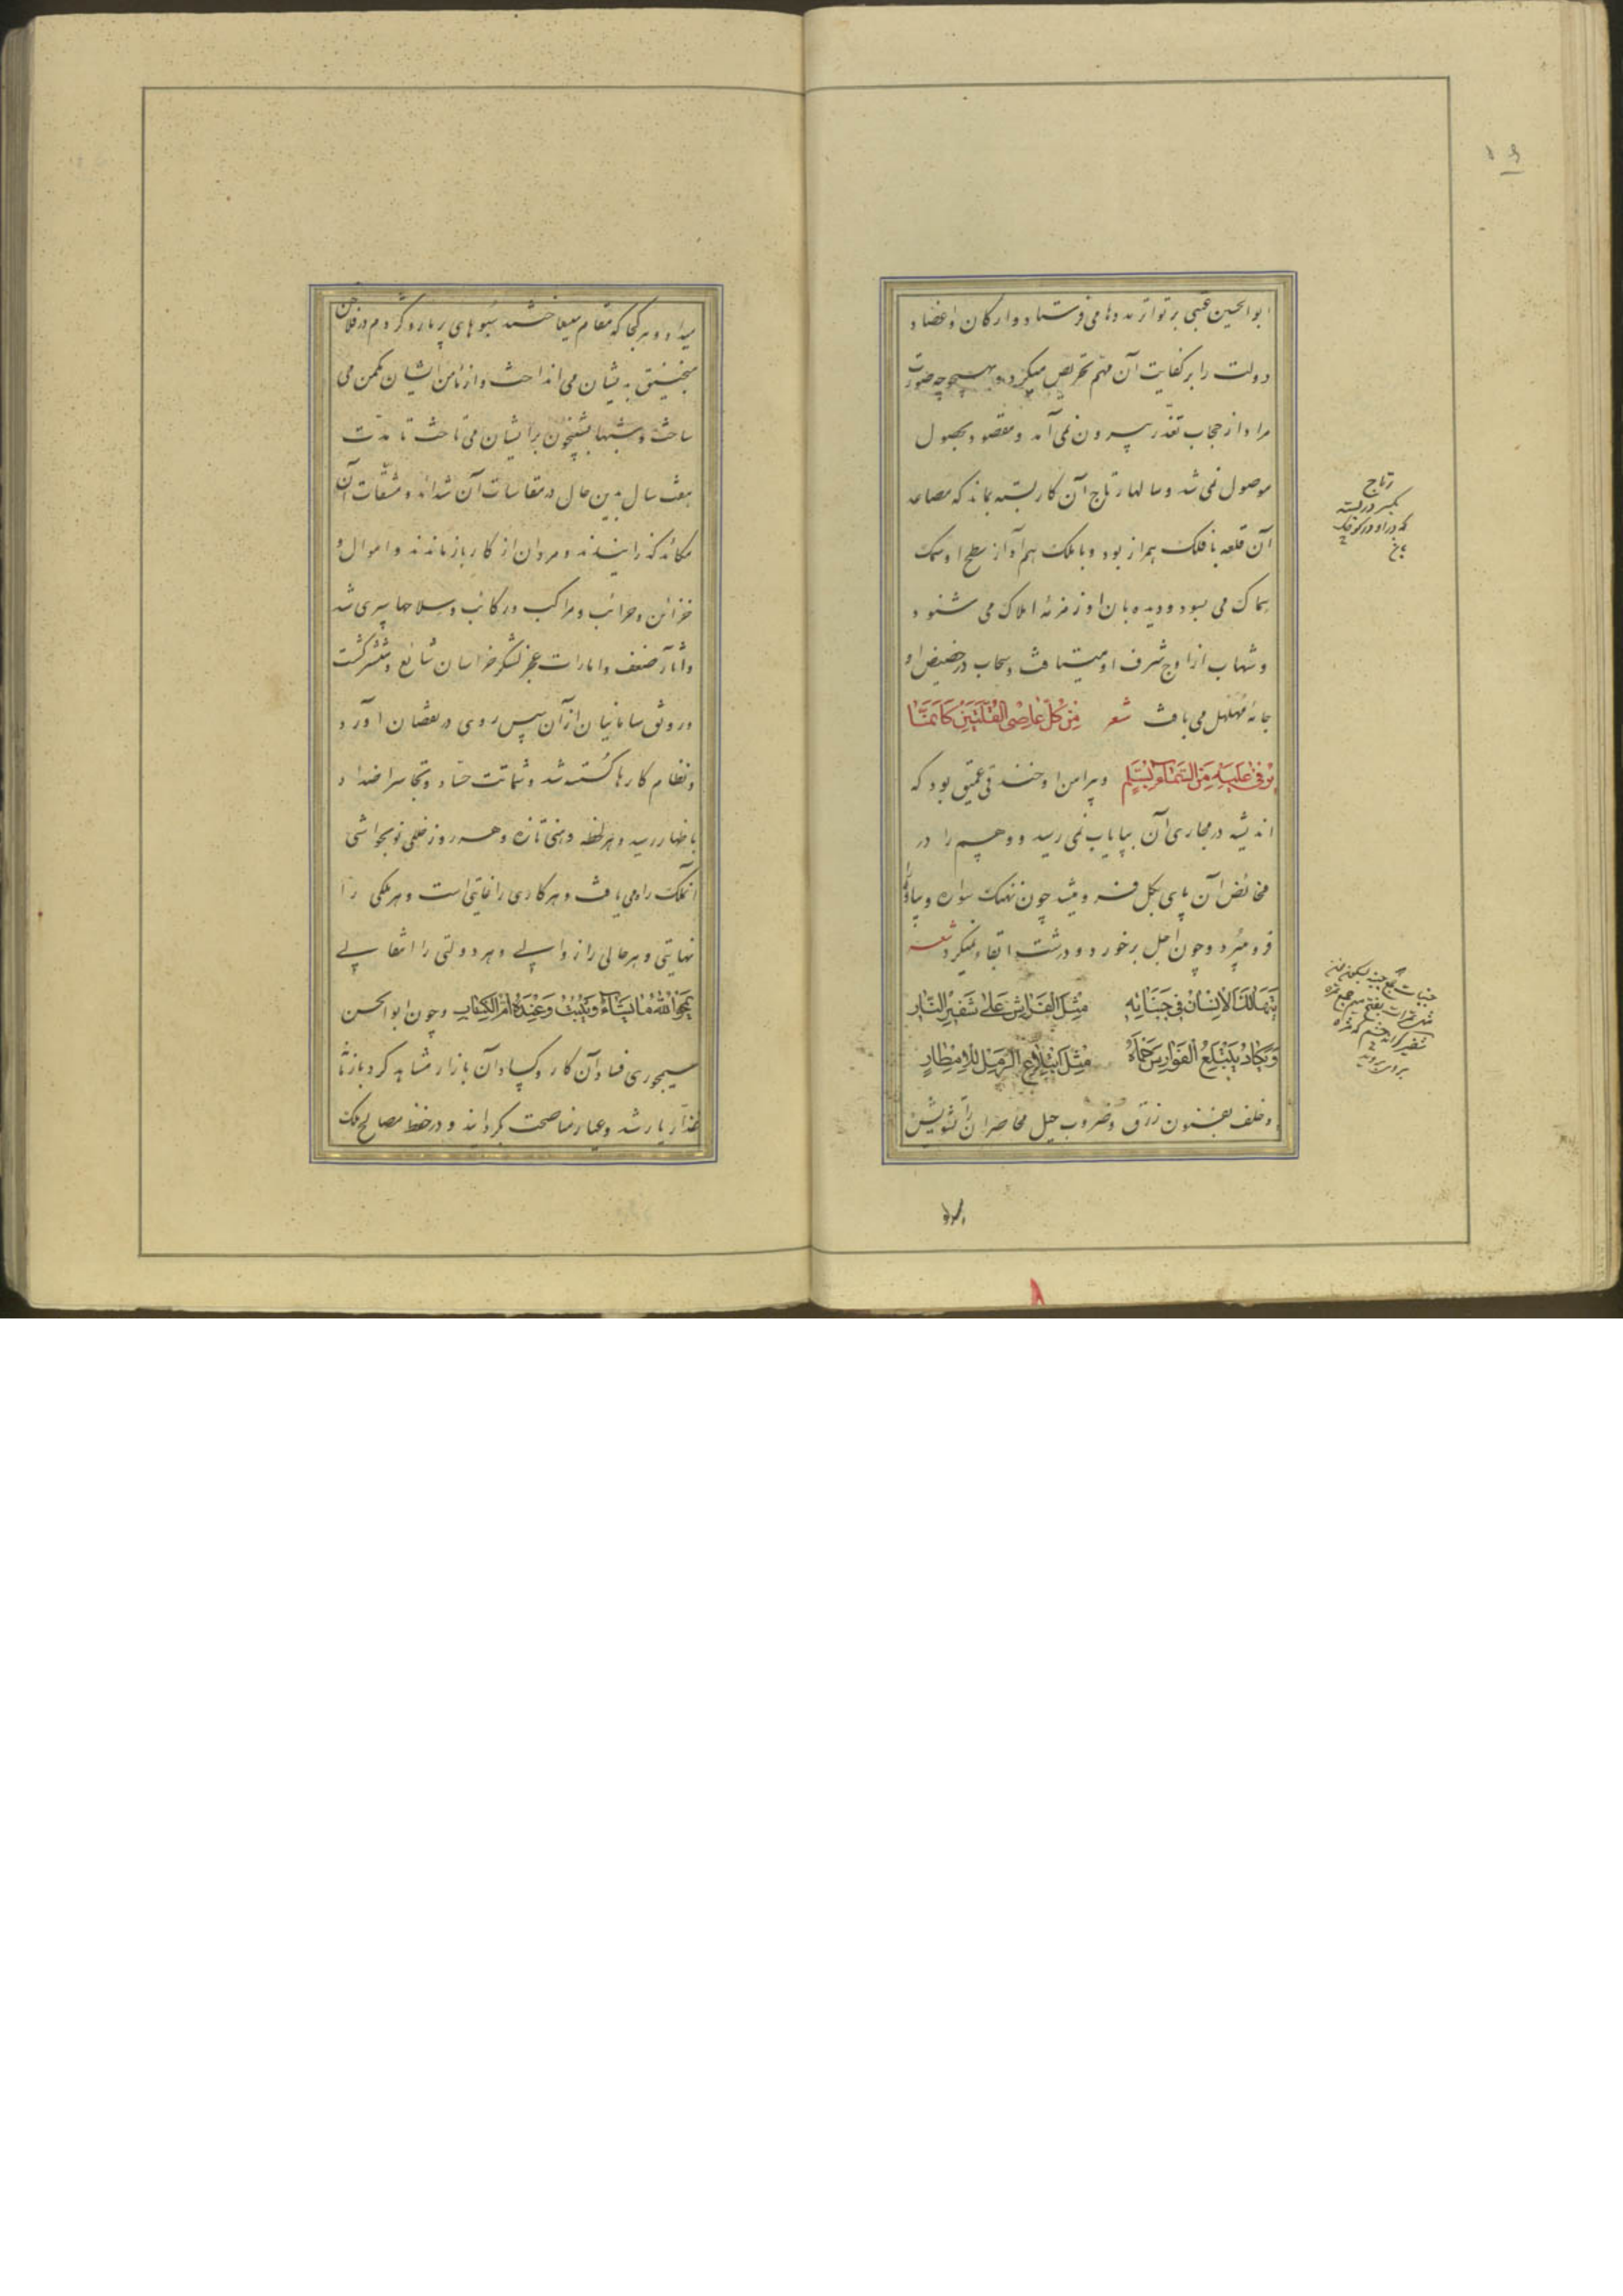 ابوالحسین عتبی بر تواتر مددها می فرستاد و ارکان و اعضاد
دولت را بر کفایت آن مهم تحریض میکرد و بهیچ وجه صورت
مراد از حجاب تعذر بیرون نمی آمد و مقصود بحصول
موصول نمی شد و سالها رتاج آن کار بسته بماند که مصاعد
آن قلعه با فلک همراز بود و با ملک هم آواز سطح او سمک
سماک می بسود و دیده بان او زمزمهٔ املاک می شنود
و شهاب از اوج شرف او میتافت و سحاب در حضیض او
جامهٔ مهلهل می بافت شعر من کل عاصی القلتین کانما
یرقی علیه من السماء بسلم و پیرامن او خندقی عمیق بود که
اندیشه در مجاری آن بپایاب نمی رسید و وهم را در
مخائض آن پای بگل فرو میشد چون نهنگ سواره و پیاده
فرو میبرد و چون اجل بر خورد و درشت ابقاء نمیکرد شعر
یتهالک الانسان فی جنباته مثل الفراش علی شفیر النار
و یکاد یبتلع الفوارس حماه مثل ابتلاع الرمل للامطار
و خلف بفنون زرق و ضروب حیل محاصران را تشویش
رتاج
بکسر در بسته
که در او در کوچک
جنبات جمع جنبه
میداد و هر کجا که مقام میساختند سبوهای پر مار و کژدم در فلاخن
منجنیق بدیشان می انداخت و از مامن ایشان مکمن می
ساخت و شبها شبیخون بر ایشان می تاخت تا مدت
هفت سال بدین حال در مقاسات آن شدائد و مشقات آن
مکائد گذرانیدند و مردان از کار بازماندند و اموال و
خزائن و حرائب و مراکب و رکائب و سلاحها سپری شد
و آثار ضعف و امارات عجز لشکر خراسان شائع و منتشر گشت
و رونق سامانیان از آن پس روی در نقصان آورد
و نظام کارها گسسته شد و شماتت حساد و تجاسر اضداد
باظهار رسید و هر لحظه وهنی تازه و هر روز خللی نو بحواشی
آن ملک راه می یافت و هر کاری را غایتی است و هر ملکی را
نهایتی و هر حالی را زوالی و هر دولتی را انتقالی
یمحوا الله ما یشاء و یثبت و عنده ام الکتاب و چون ابوالحسن
سیمجوری فساد آن کار و کساد آن بازار مشاهده کرد با زمانهٔ
غدار یار شد و عیار مناصحت بگردانید و در حفظ مصالح ملک